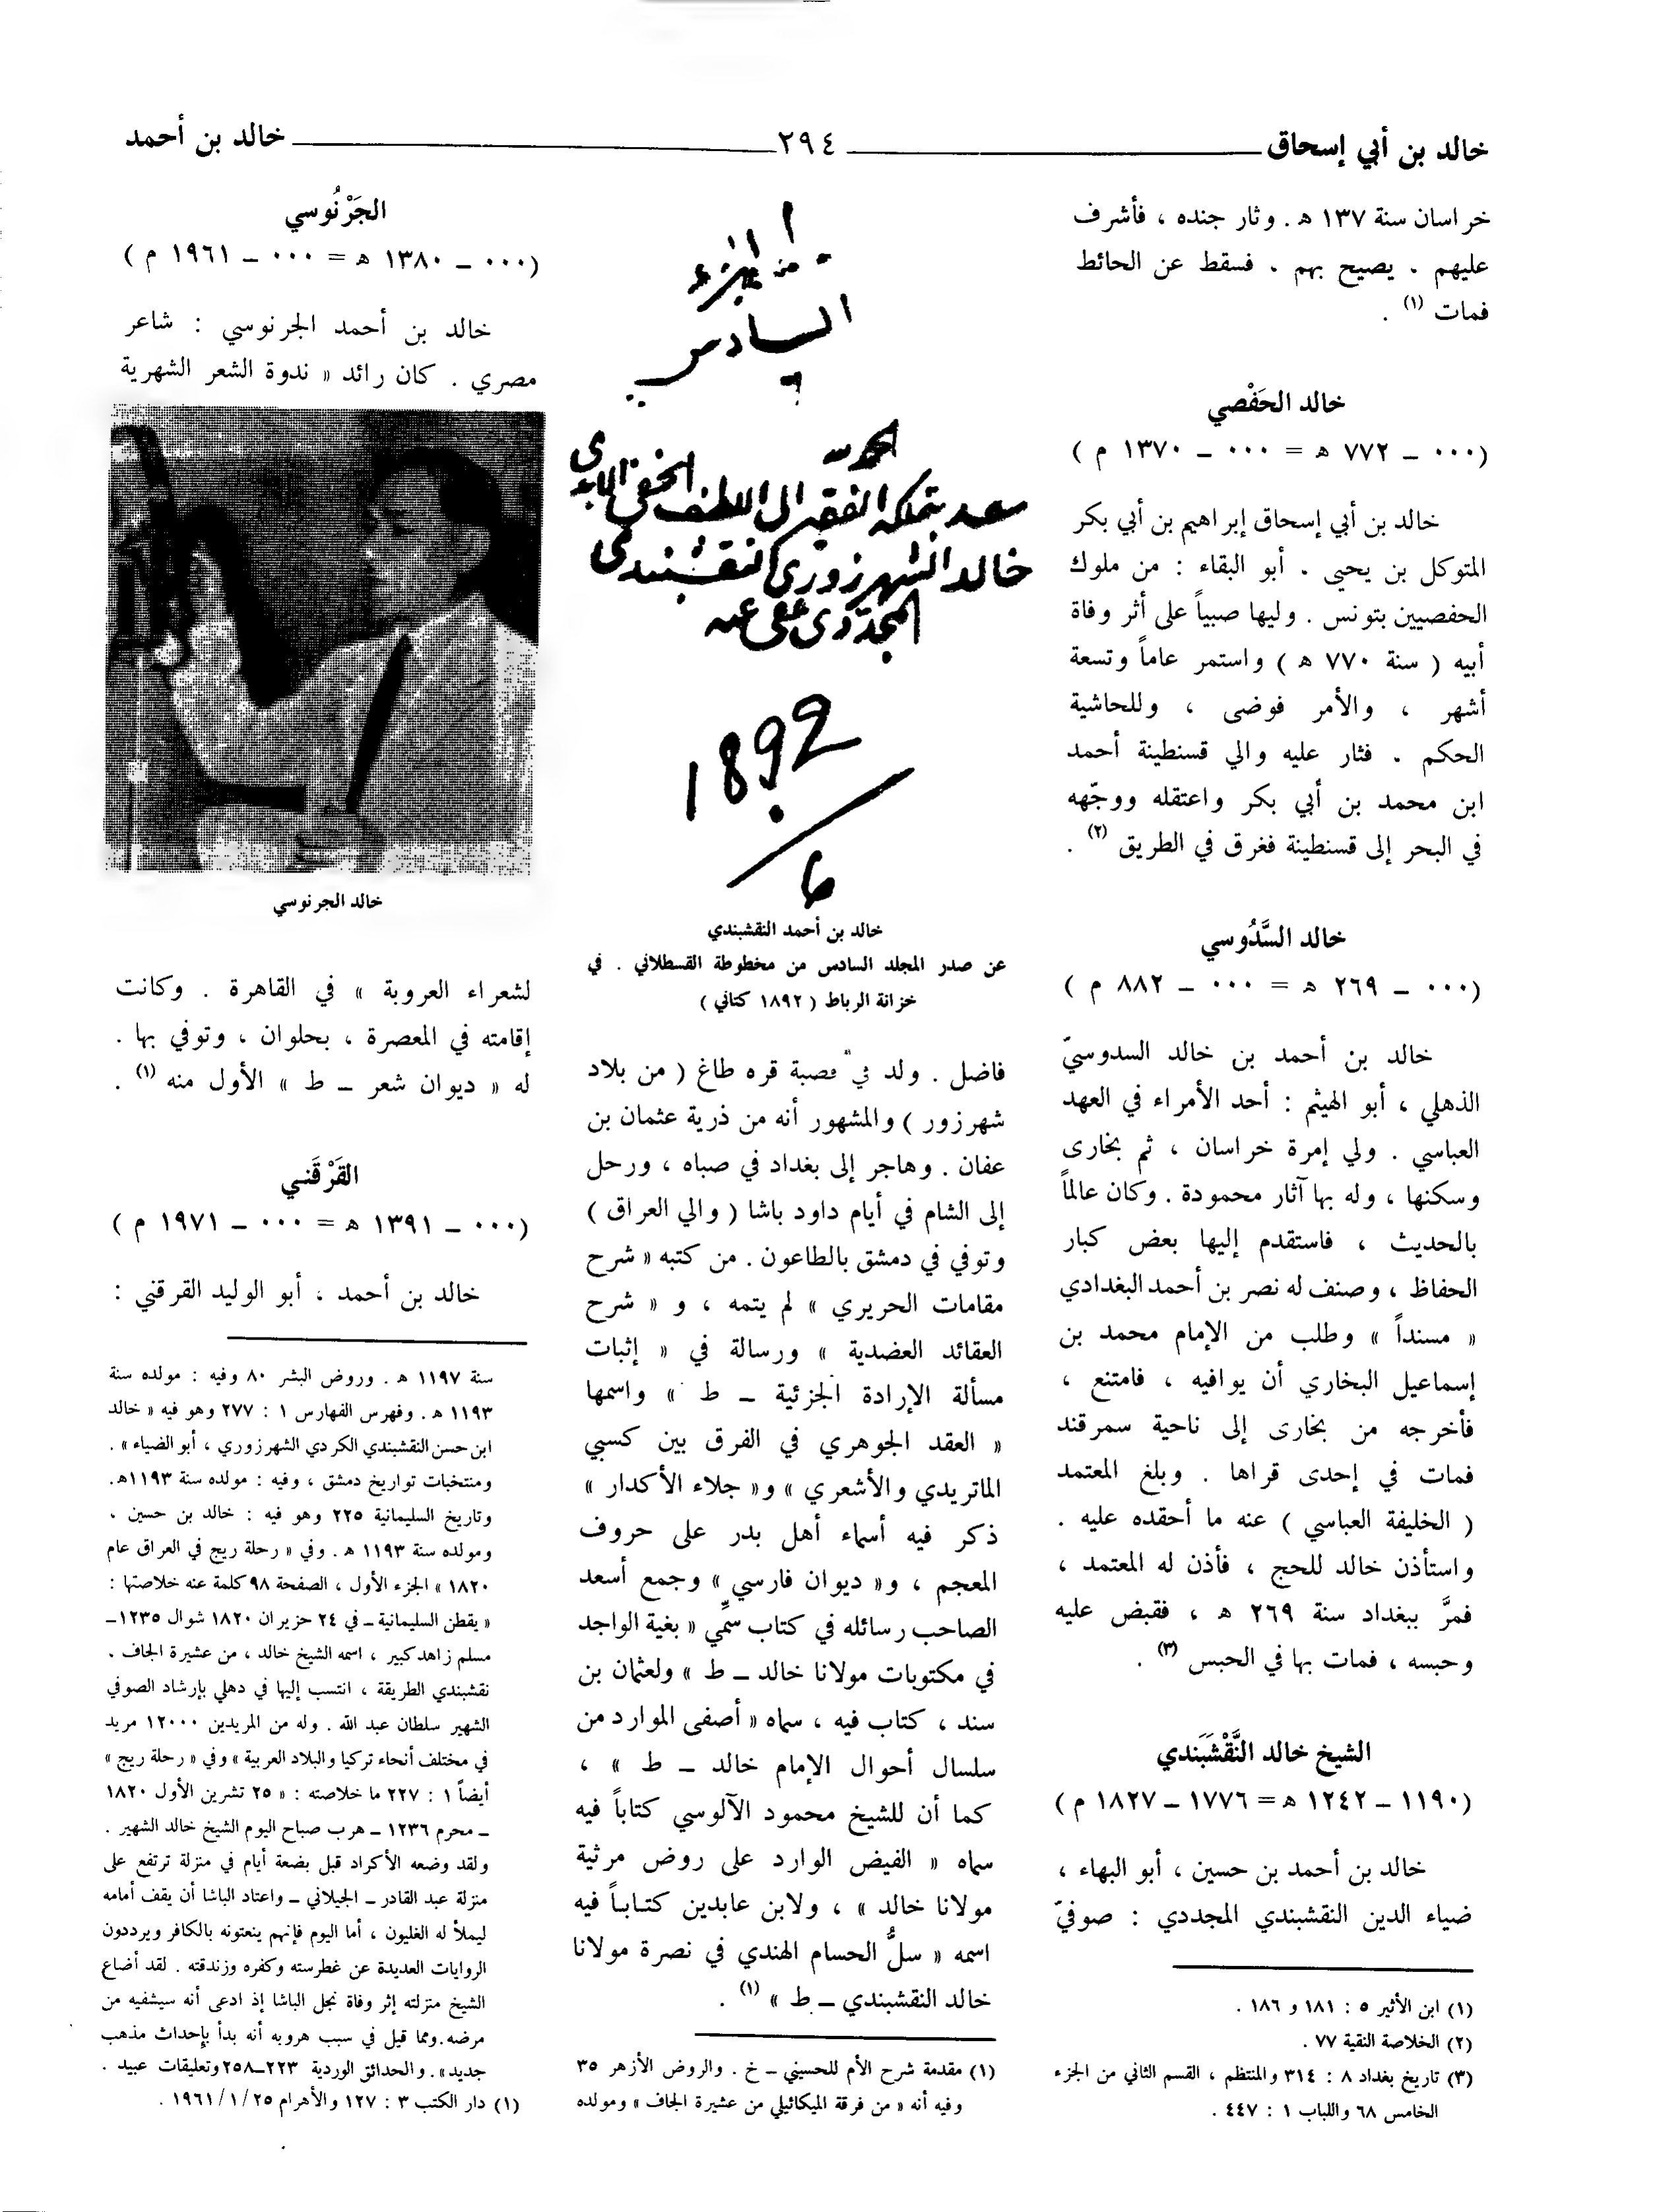 خالد بن أبي إسحاق ـــ ٢٩٤ ـــ خالد بن أحمد
خراسان سنة ١٣٧ هـ . وثار جنده ، فأشرف
عليهم . يصيح بهم . فسقط عن الحائط
فمات (١) .
خالد الحَفْصي
(٠٠٠ – ٧٧٢ هـ = ٠٠٠ – ١٣٧٠ م )
خالد بن أبي إسحاق إبراهيم بن أبي بكر
المتوكل بن يحيى . أبو البقاء : من ملوك
الحفصيين بتونس . وليها صبياً على أثر وفاة
أبيه ( سنة ٧٧٠ هـ ) واستمر عاماً وتسعة
أشهر ، والأمر فوضى ، وللحاشية
الحكم . فثار عليه والي قسنطينة أحمد
ابن محمد بن أبي بكر واعتقله ووجّهه
في البحر إلى قسنطينة فغرق في الطريق (٢) .
خالد السَّدُوسي
(٠٠٠ – ٢٦٩ هـ = ٠٠٠ – ٨٨٢ م )
خالد بن أحمد بن خالد السدوسيّ
الذهلي ، أبو الهيثم : أحد الأمراء في العهد
العباسي . ولي إمرة خراسان ، ثم بخارى
وسكنها ، وله بها آثار محمودة . وكان عالماً
بالحديث ، فاستقدم إليها بعض كبار
الحفاظ ، وصنف له نصر بن أحمد البغدادي
« مسنداً » وطلب من الإمام محمد بن
إسماعيل البخاري أن يوافيه ، فامتنع ،
فأخرجه من بخارى إلى ناحية سمرقند
فمات في إحدى قراها . وبلغ المعتمد
( الخليفة العباسي ) عنه ما أحقده عليه .
واستأذن خالد للحج ، فأذن له المعتمد ،
فمرَّ ببغداد سنة ٢٦٩ هـ ، فقبض عليه
وحبسه ، فمات بها في الحبس (٣) .
الشيخ خالد النَّقْشَبَندي
(١١٩٠ – ١٢٤٢ هـ = ١٧٧٦ – ١٨٢٧ م )
خالد بن أحمد بن حسين ، أبو البهاء ،
ضياء الدين النقشبندي المجددي : صوفيّ
(١) ابن الأثير ٥ : ١٨١ و ١٨٦ .
(٢) الخلاصة النقية ٧٧ .
(٣) تاريخ بغداد ٨ : ٣١٤ والمنتظم ، القسم الثاني من الجزء
الخامس ٦٨ واللباب ١ : ٤٤٧ .
من الجزء
السادس
الحمد لله
سعد بتملكه الفقير الى اللطف الخفي
خالد الشهرزوري النقشبندي
المجددي عفي عنه
1892
6
خالد بن أحمد النقشبندي
عن صدر المجلد السادس من مخطوطة القسطلاني . في
خزانة الرباط ( ١٨٩٢ كتاني )
فاضل . ولد في قصبة قره طاغ ( من بلاد
شهرزور ) والمشهور أنه من ذرية عثمان بن
عفان . وهاجر إلى بغداد في صباه ، ورحل
إلى الشام في أيام داود باشا ( والي العراق )
وتوفي في دمشق بالطاعون . من كتبه « شرح
مقامات الحريري » لم يتمه ، و « شرح
العقائد العضدية » ورسالة في « إثبات
مسألة الإرادة الجزئية – ط » واسمها
« العقد الجوهري في الفرق بين كسبي
الماتريدي والأشعري » و« جلاء الأكدار »
ذكر فيه أسماء أهل بدر على حروف
المعجم ، و« ديوان فارسي » وجمع أسعد
الصاحب رسائله في كتاب سمِّي « بغية الواجد
في مكتوبات مولانا خالد – ط » ولعثمان بن
سند ، كتاب فيه ، سماه « أصفى الموارد من
سلسال أحوال الإمام خالد – ط » ،
كما أن للشيخ محمود الآلوسي كتاباً فيه
سماه « الفيض الوارد على روض مرثية
مولانا خالد » ، ولابن عابدين كتاباً فيه
اسمه « سلُّ الحسام الهندي في نصرة مولانا
خالد النقشبندي – ط » (١) .
(١) مقدمة شرح الأم للحسيني – خ . والروض الأزهر ٣٥
وفيه أنه « من فرقة الميكائيلي من عشيرة الجاف » ومولده
الجَرْنُوسي
(٠٠٠ – ١٣٨٠ هـ = ٠٠٠ – ١٩٦١ م )
خالد بن أحمد الجرنوسي : شاعر
مصري . كان رائد « ندوة الشعر الشهرية
خالد الجرنوسي
لشعراء العروبة » في القاهرة . وكانت
إقامته في المعصرة ، بحلوان ، وتوفي بها .
له « ديوان شعر – ط » الأول منه (١) .
القَرْقَني
(٠٠٠ – ١٣٩١ هـ = ٠٠٠ – ١٩٧١ م )
خالد بن أحمد ، أبو الوليد القرقني :
سنة ١١٩٧ هـ . وروض البشر ٨٠ وفيه : مولده سنة
١١٩٣ هـ . وفهرس الفهارس ١ : ٢٧٧ وهو فيه « خالد
ابن حسن النقشبندي الكردي الشهرزوري ، أبو الضياء » .
ومنتخبات تواريخ دمشق ، وفيه : مولده سنة ١١٩٣هـ.
وتاريخ السليمانية ٢٢٥ وهو فيه : خالد بن حسين ،
ومولده سنة ١١٩٣ هـ . وفي « رحلة ريج في العراق عام
١٨٢٠ » الجزء الأول ، الصفحة ٩٨ كلمة عنه خلاصتها :
« يقطن السليمانية – في ٢٤ حزيران ١٨٢٠ شوال ١٢٣٥ –
مسلم زاهد كبير ، اسمه الشيخ خالد ، من عشيرة الجاف .
نقشبندي الطريقة ، انتسب إليها في دهلي بإرشاد الصوفي
الشهير سلطان عبد الله . وله من المريدين ١٢٠٠٠ مريد
في مختلف أنحاء تركيا والبلاد العربية » وفي « رحلة ريج »
أيضاً ١ : ٢٢٧ ما خلاصته : « ٢٥ تشرين الأول ١٨٢٠
– محرم ١٢٣٦ – هرب صباح اليوم الشيخ خالد الشهير .
ولقد وضعه الأكراد قبل بضعة أيام في منزلة ترتفع على
منزلة عبد القادر – الجيلاني – واعتاد الباشا أن يقف أمامه
ليملأ له الغليون ، أما اليوم فإنهم ينعتونه بالكافر ويرددون
الروايات العديدة عن غطرسته وكفره وزندقته . لقد أضاع
الشيخ منزلته إثر وفاة نجل الباشا إذ ادعى أنه سيشفيه من
مرضه.ومما قيل في سبب هروبه أنه بدأ بإحداث مذهب
جديد» . والحدائق الوردية ٢٢٣–٢٥٨ وتعليقات عبيد .
(١) دار الكتب ٣ : ١٢٧ والأهرام ٢٥/١/١٩٦١ .